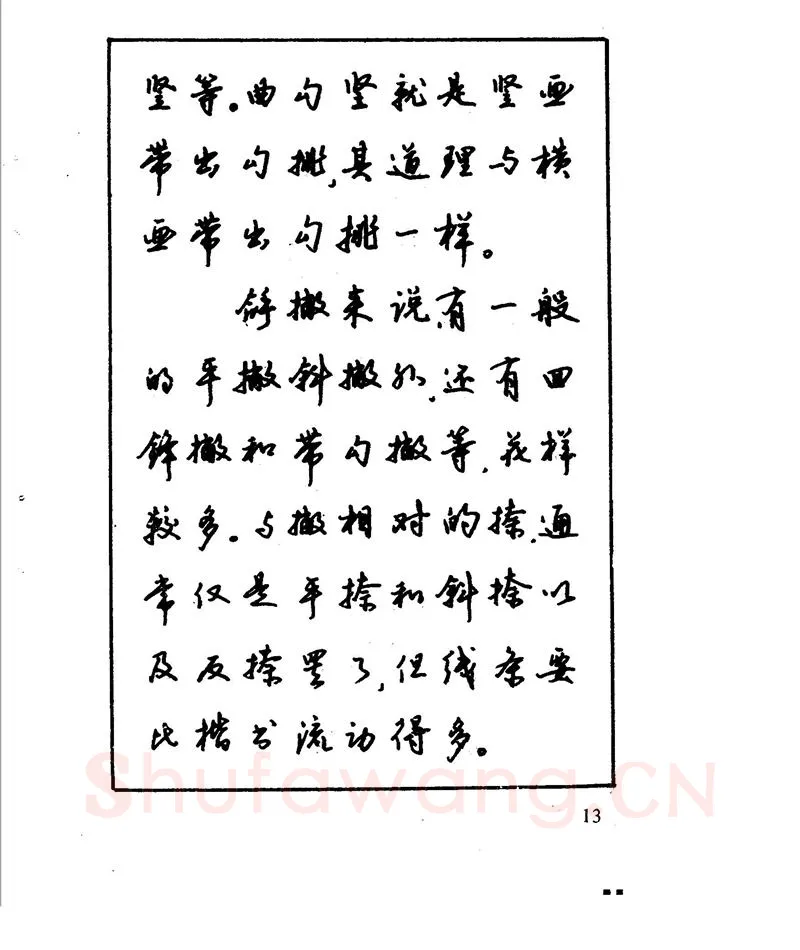 竖等。曲勾竖就是竖画
带出勾挑,其道理与横
画带出勾挑一样。
解撇来说,有一般
的平撇斜撇外,还有回
锋撇和带勾撇等,花样
较多。与撇相对的捺,通
常仅是平捺和斜捺以
及反捺罢了,但线条要
比楷书流动得多。
Shufawang.CN
13